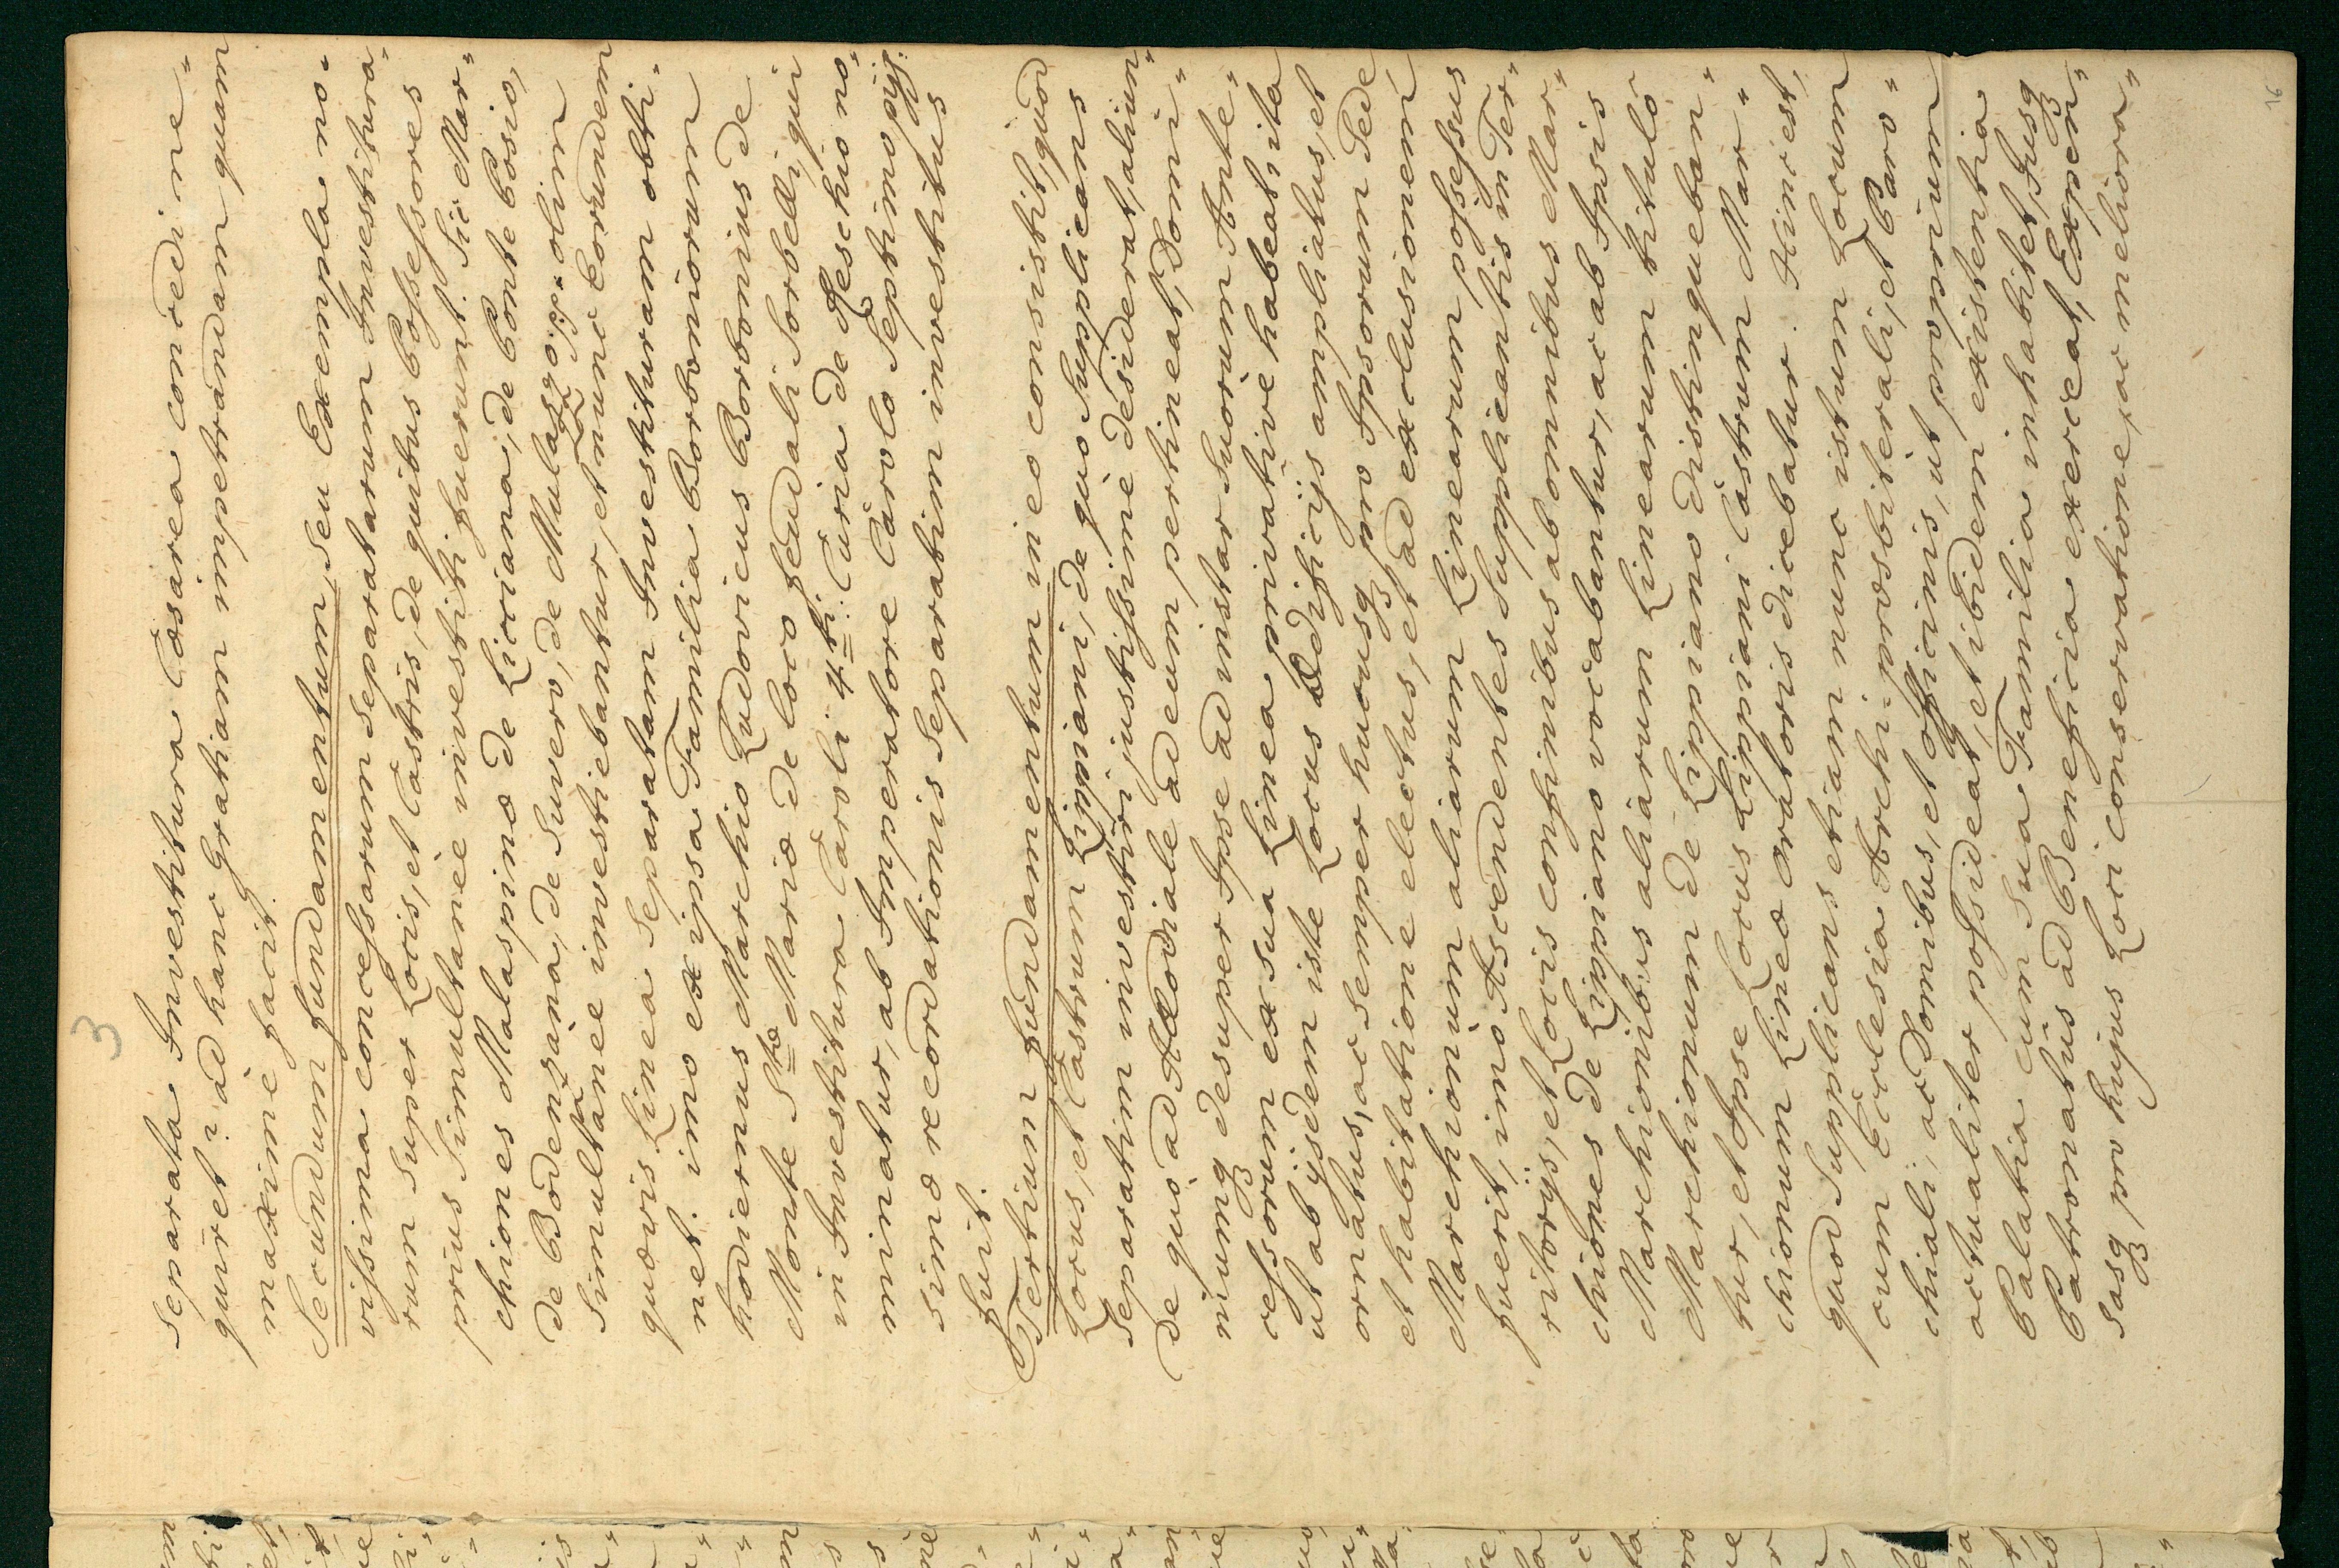 3
separata Investitura Cæsarea concedi ne-
quiret? ad hanc Gratiam impetrandam quam
maximè facit.
Secundum fundamentum, seu Exempla no-
vissima concessarum separatarum Investitura-
rum super Locis, et Castris, de quibus Possessores
prius simultaneè investiti fuerunt. Sic Mar-
chiones Malaspinæ de Licciana, de Ponte Bosio,
de Bodenzana, de Suvero, de Mulazzo olim
simultaneè investiebantur, et nunc eorundem
quævis Linea separatam Investituram obti-
net. imo ex ipsa Familia Borboniorum
hodiernus Marchio Ludovicus Borbonius de
Monte Stæ Mariæ de loco feudali Sorbelli, qui
in Investitura Caroli 4ti: Curia de Feschio no-
minatur, ab Imperatore Carolo Septimo piis-
simæ recordationis separatim investitus
fuit.
Tertium fundamentum in eo consistit, quod
Locus, et Castrum Lippiani, de quo supplicans
separatim investiri justissimè desiderat, aliun-
de quò ad Allodiale ad eum pertineat, Domi-
niumq desuper Ipse ad instar suorum Ante-
cessorum ex sua Linea privativè habeat, ita
ut ab ijsdem iste Locus Ædificijs ampliatus, et
ornatus, ac semper hucusq pro Ipsorum Sede
et habitatione electus, et ad exclusionem
Marchionum aliarum Linearum possessus
fuerit, imo Ascendentes supplicantis in Ter-
ritorijs, et Locis confinibus ab omnibus Mar-
chiones de Lippiano vocabantur, ac ab Ipsis
Marchionibus aliarum Linearum titulo
Marchionum de Lippiano distingueban-
tur, et Ipse Locus Lippiani Castrum Mar-
chionum Lineæ oratoris dicebatur. Hinc est,
quod supplicans etiam nunc istum Locum
cum Ecclesia Archi-presbiterali, et Paro-
chiali, ac Domibus, et officinis, ut proprium
actualiter possideat, et ibidem existentia
Palatia cum sua Familia inhabitet, Jusq
Patronatus ad Beneficia exerceat, Expen-
sasq pro hujus Loci conservatione, ac meliora-